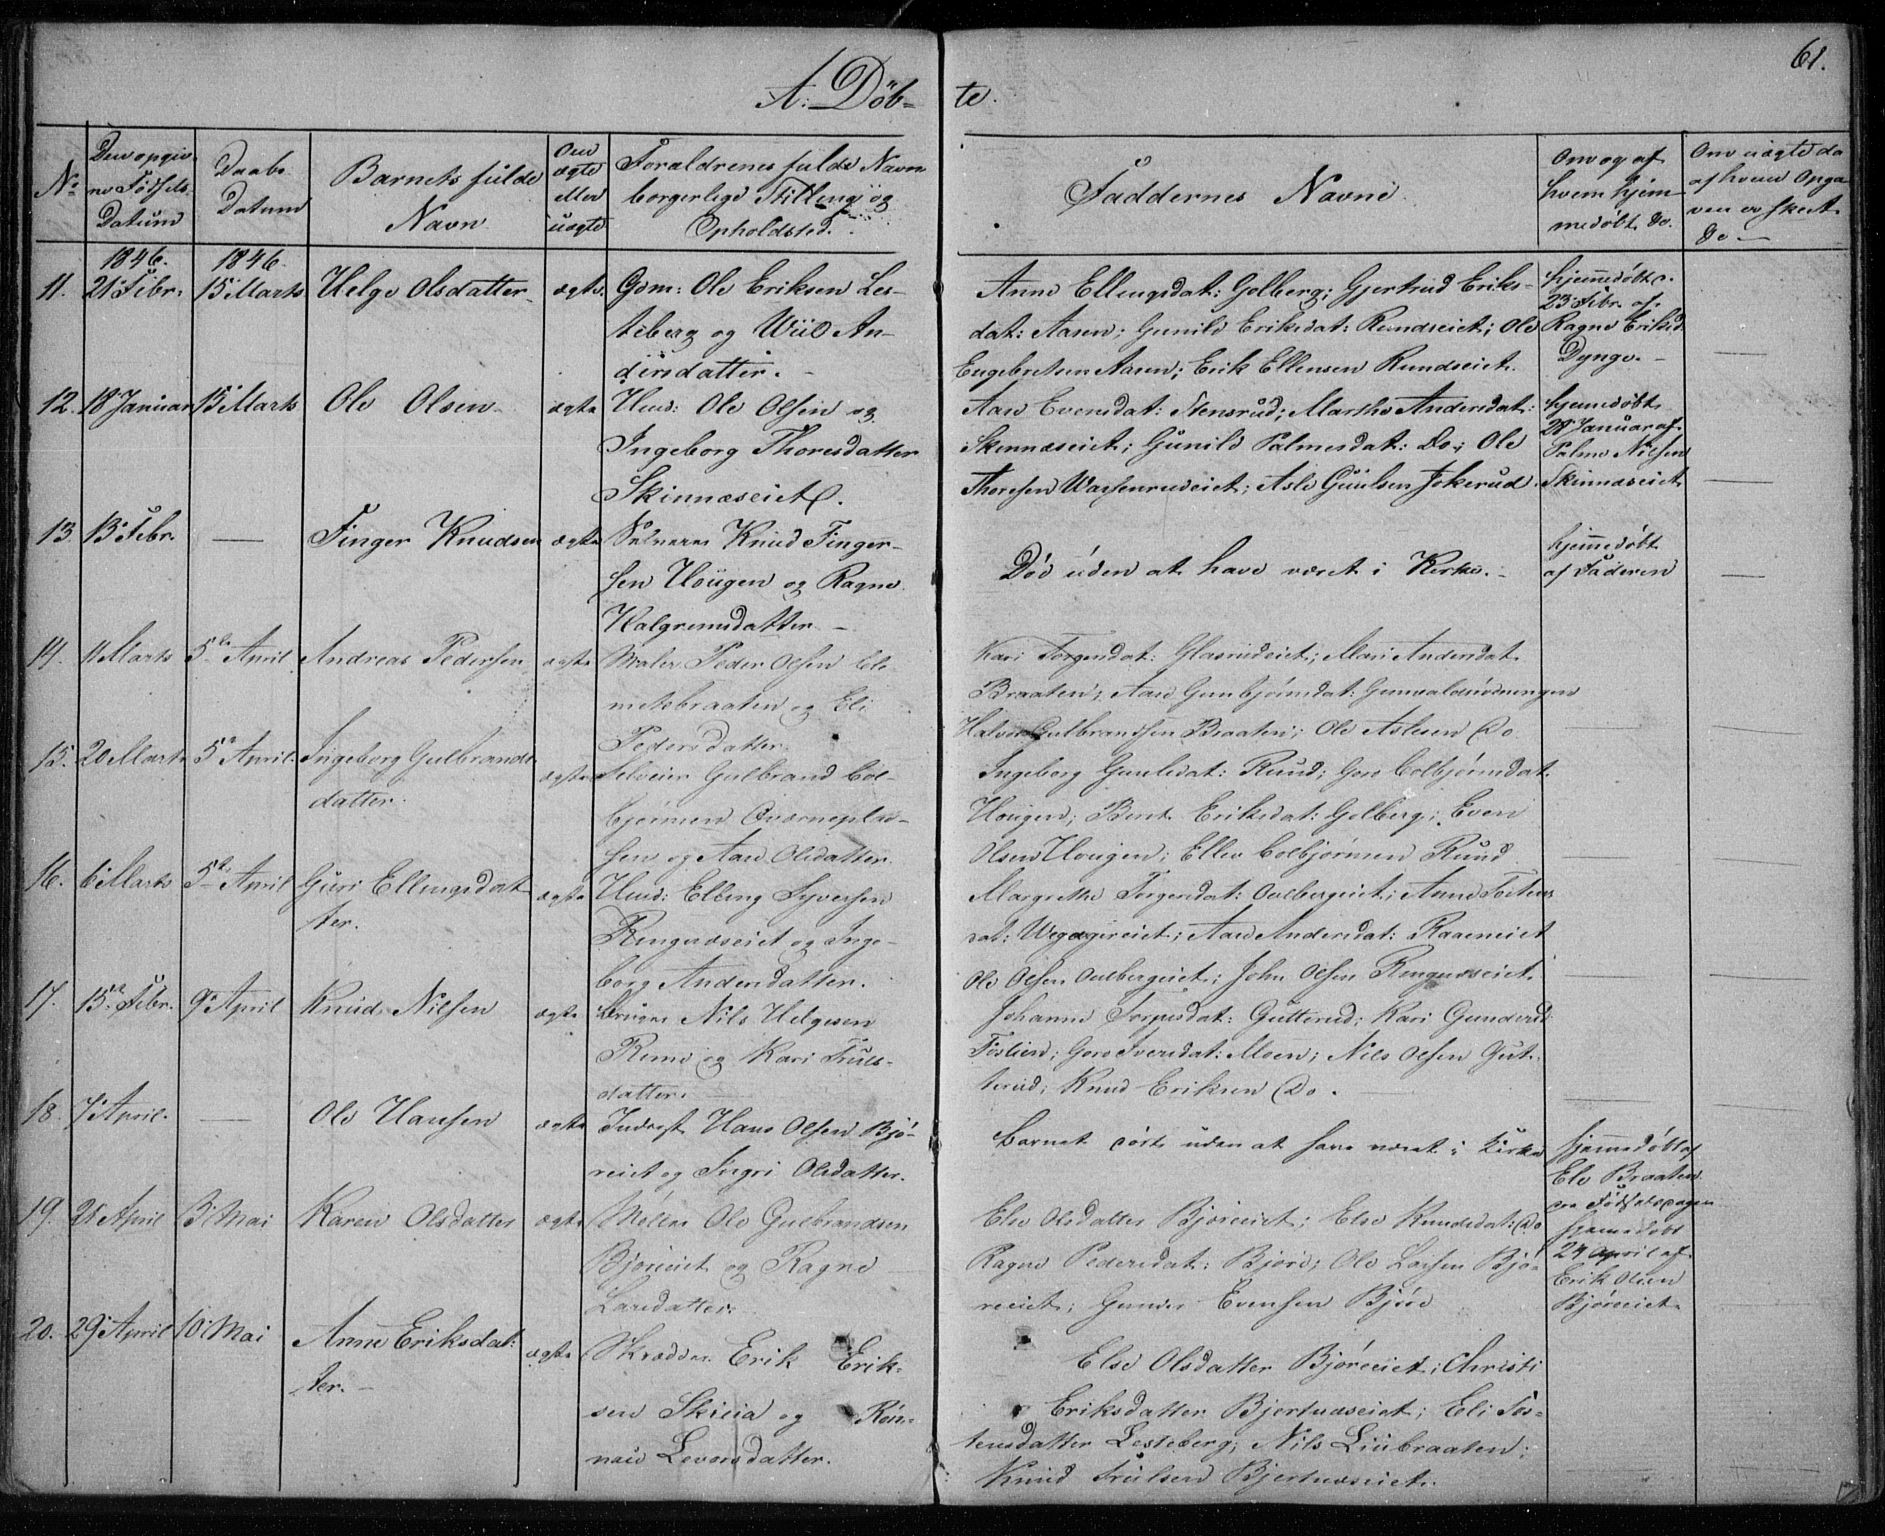 61.
A: Døb- te.
No
Den opgiv
ne Fødsels
Datum
Daabs
Datum
Barnets fulde
Navn
Om
ægte
eller
uægte
Forældrenes fulde Navn
borgerlige Stilling og
Opholdsted.
Faddernes Navne
Om og af
hvem hjem
medøbt Do.
Om uægte da
af hvem Opga
ven er skeet
Do —
1846. 1846.
11. 21 Febr. 15 Marts Helge Olsdatter ægte
Gom: Ole Eriksen Les-
teberg og Wiil An-
dersdatter.
Anne Ellingsdat: Golberg; Gjertrud Eriks-
dat: Aasen; Gunild Eriksdat: Rundseiet; Ole
Engebretsen Aasen; Erik Ellensen Rundseiet.
hjemmedøbt
23 Febr. af
Ragne Eriksd.
Dynge.
12. 18 Januar 15 Marts Ole Olsen ægte
Huus: Ole Olsen og
Ingeborg Thoresdatter
Skinnæseiet.
Aase Evensdat: Stensrud; Marthe Andersdat:
Skinnæseiet; Gunild Palmesdat: Do; Ole
Thoresen Warsenrudeiet; Asle Guulsen Jokerud
hjemmedøbt
28 Januar af
Palme Nilsen
Skinnæseiet
13 13 Febr. — Finger Knudsen ægte
Knud Finger-
sen Hougen og Ragne
Halgremsdatter —
Død uden at have været i Kirke.
hjemmedøbt
af Faderen
14. 11 Marts 5te April Andreas Pedersen ægte
Maler Peder Olsen Cle-
metsbraaten og Eli
Pedersdatter
Kari Torgersdat: Glasrudeiet; Mari Andersdat
Braaten; Aase Gunbjørnsdat: Gunvaldsrødningen
Halvor Gulbrandsen Braaten; Ole Aslesen Do
15. 20 Marts 5te April Ingeborg Gulbrands
datter. ægte
Selveier Gulbrand Col-
bjørnsen Qværneplas-
sen og Aase Olsdatter.
Ingeborg Guulsdat: Ruud; Goro Colbjørnsdat
Hougen; Berit Eriksdat: Golberg; Even
Olsen Hougen; Ellev Colbjørnsen Ruud
16. 6 Marts 5te April Guri Ellingsdat
ter. ægte
Huus: Elling Syversen
Ringnæseiet og Inge-
borg Andersdatter.
Margrethe Torgersdat: Aulbergeiet; Anne Tostens
dat: ; Aase Andersdat: Raaeneiet
Ole Olsen Aulbergeiet; John Olsen Ringnæseiet.
17. 15de Febr. 9 April Knud Nilsen ægte
Bruger Nils Helgesen
Rime og Kari Truls-
datter.
Johanne Torgersdat: Gutterud; Kari Gundersd:
Foslien; Goro Iversdat: Moen; Nils Olsen Gut-
terud; Knud Eriksen Do.
18. 7 April. — Ole Hansen ægte
Inderst Hans Olsen Bjø-
reiet og Ingri Olsdatter.
Barnet døde uden at have været i Kirke
hjemmedøbt af
Elv Braaten
paa Fødselsdagen
19. 21 April 3 Mai Karen Olsdatter ægte
Møller Ole Gulbrandsen
Bjøreiet og Ragne
Larsdatter.
Else Olsdatter Bjøreeiet; Else Knudsdat: Do
Ragne Pedersdat: Bjøre; Ole Larsen Bjø-
reeiet; Gunder Evensen Bjøre
hjemmedøbt
24 April af
Erik Olsen
Bjøreeiet
20. 29 April 10 Mai Anne Eriksdat:
ter. ægte
Skrædder Erik Erik-
sen Skieia og Røn-
nau Levorsdatter.
Else Olsdatter Bjøreeiet; Christi
Eriksdatter Bjertnæseiet; Eli Tos-
tensdatter Lesteberg; Nils Liubraaten;
Knud Trulsen Bjertnæseiet.